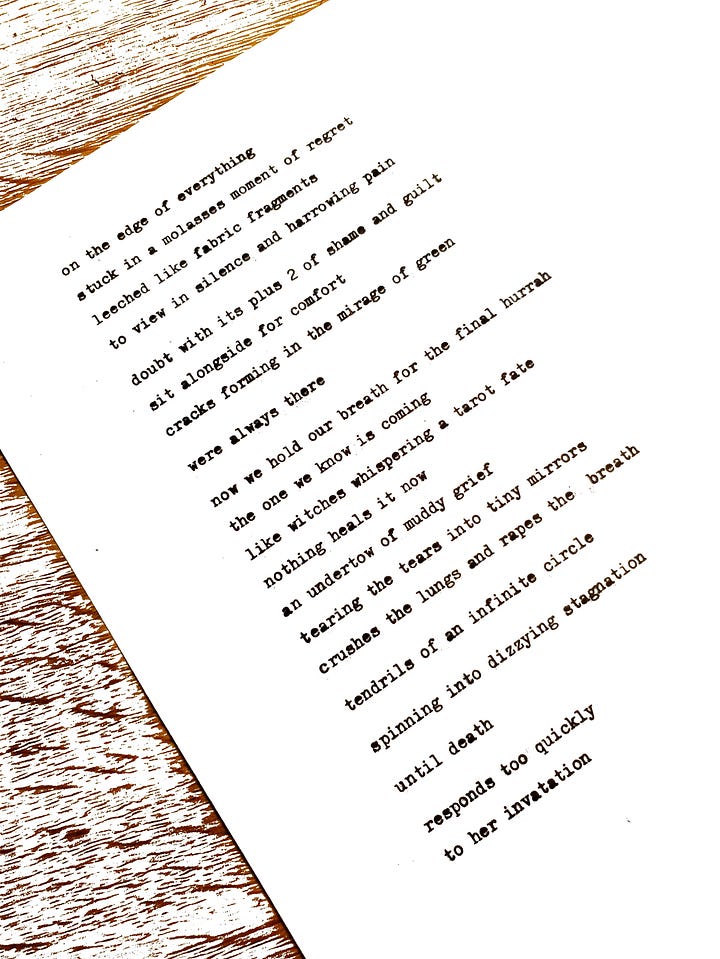 on the edge of everything
stuck in a molasses moment of regret
leeched like fabric fragments
to view in silence and harrowing pain
doubt with its plus 2 of shame and guilt
sit alongside for comfort
cracks forming in the mirage of green
were always there
now we hold our breath for the final hurrah
the one we know is coming
like witches whispering a tarot fate
nothing heals it now
an undertow of muddy grief
tearing the tears into tiny mirrors
crushes the lungs and rapes the breath
tendrils of an infinite circle
spinning into dizzying stagnation
until death
responds too quickly
to her invatation